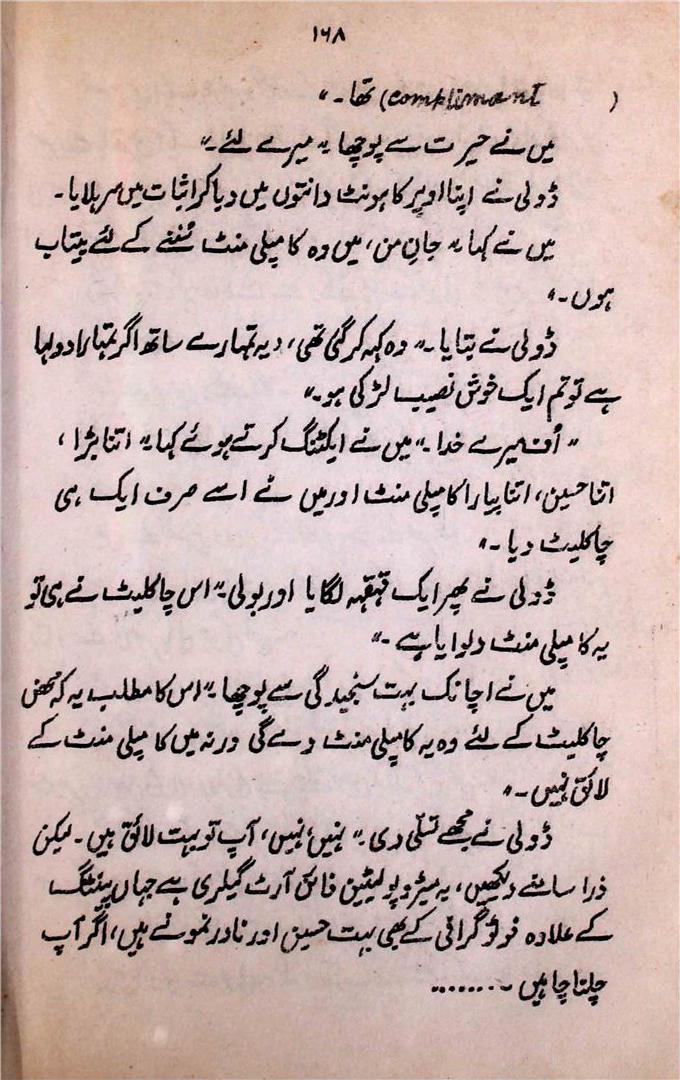 ۱۶۸
(complimant) تھا۔"
میں نے حیرت سے پوچھا "میرے لئے۔"
ڈولی نے اپنا اوپر کا ہونٹ دانتوں میں دبا کر اثبات میں سر ہلایا۔
میں نے کہا "جانِ من، میں وہ کامپلی منٹ سُننے کے لئے بیتاب
ہوں۔"
ڈولی نے بتایا۔" وہ کہہ کر گئی تھی، "یہ تمہارے ساتھ اگر تمہارا دولہا
ہے تو تم ایک خوش نصیب لڑکی ہو۔"
"اُف میرے خدا۔" میں نے ایکٹنگ کرتے ہوئے کہا "اتنا بڑا،
اتنا حسین، اتنا پیارا کامپلی منٹ اور میں نے اسے صرف ایک ہی
چاکلیٹ دیا۔"
ڈولی نے پھر ایک قہقہہ لگایا اور بولی "اس چاکلیٹ نے ہی تو
یہ کامپلی منٹ دلوایا ہے۔"
میں نے اچانک بہت سنجیدگی سے پوچھا "اس کا مطلب یہ کہ محض
چاکلیٹ کے لئے وہ یہ کامپلی منٹ دے گی ورنہ میں کامپلی منٹ کے
لائق نہیں۔"
ڈولی نے مجھے تسلّی دی۔" نہیں نہیں، آپ تو بہت لائق ہیں۔ لیکن
ذرا سامنے دیکھیں، یہ میٹروپولیٹین فائن آرٹ گیلری ہے جہاں پینٹنگ
کے علاوہ فوٹوگرافی کے بھی بہت حسین اور نادر نمونے ہیں، اگر آپ
چلنا چاہیں ۔۔۔۔۔۔۔